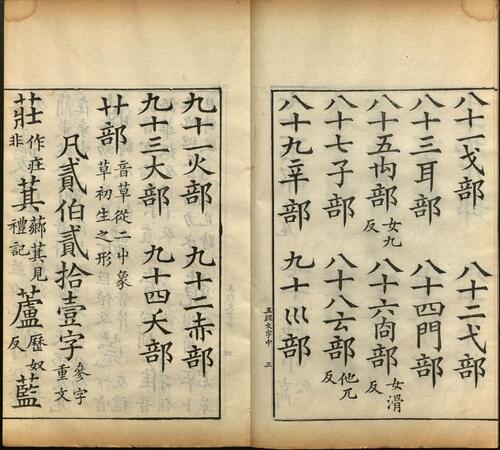 八十一戈部 八十二弋部
八十三耳部 八十四門部
八十五禸部 女九反 八十六㕯部 女滑反
八十七子部 八十八𠫓部 他兀反
八十九辛部 九十巛部
五經文字中 三
九十一火部 九十二赤部
九十三大部 九十四夭部
艹部 音草從二屮象草初生之形
凡貳伯貳拾壹字 參字重文
莊 作庄非 萁 薌萁見禮記 蘆 歷奴反 藍